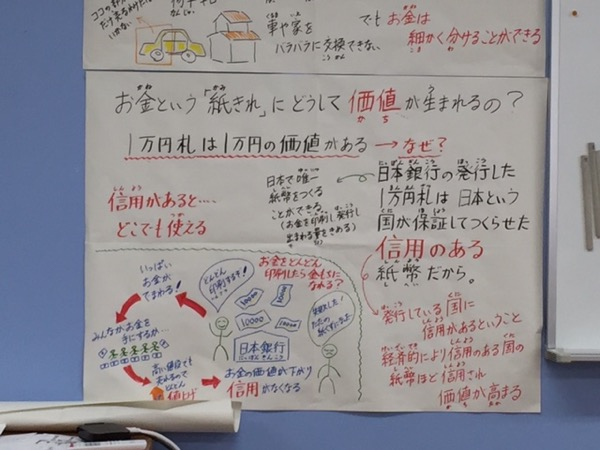 車や家を
バラバラに交換できない
でもお金は
細かく分けることができる
お金という「紙きれ」にどうして価値が生まれるの？
1万円札は1万円の価値がある → なぜ？
日本銀行の発行した
1万円札は日本という
国が保証してつくらせた
信用のある
紙幣だから。
日本で唯一
紙幣をつくる
ことができる
(お金を印刷し発行し
出まわる量をきめる)
信用があると…
どこでも使える
発行している国に
信用があるということ
経済的により信用のある国の
紙幣ほど信用され
価値が高まる
お金をどんどん
印刷したら金もちに
なれる？
いっぱい
お金が
でまわる！
どんどん
印刷するぞ！
10000
10000
10000
日本銀行
にっぽんぎんこう
みんながお金を
手にするから…
高い値段でも
売れるので
どんどん
値上げ
お金の価値が下がり
信用がなくなる